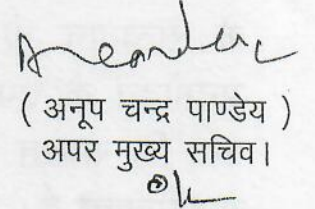 ( अनूप चन्द्र पाण्डेय )
अपर मुख्य सचिव।